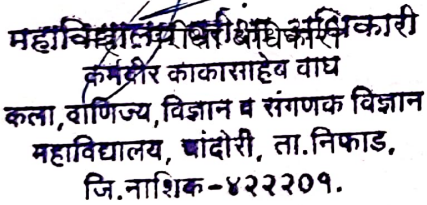 महाविद्यालय परीक्षा अधिकारी
कर्मवीर काकासाहेब वाघ
कला,वाणिज्य,विज्ञान व संगणक विज्ञान
महाविद्यालय, चांदोरी, ता.निफाड,
जि.नाशिक-४२२२०१.